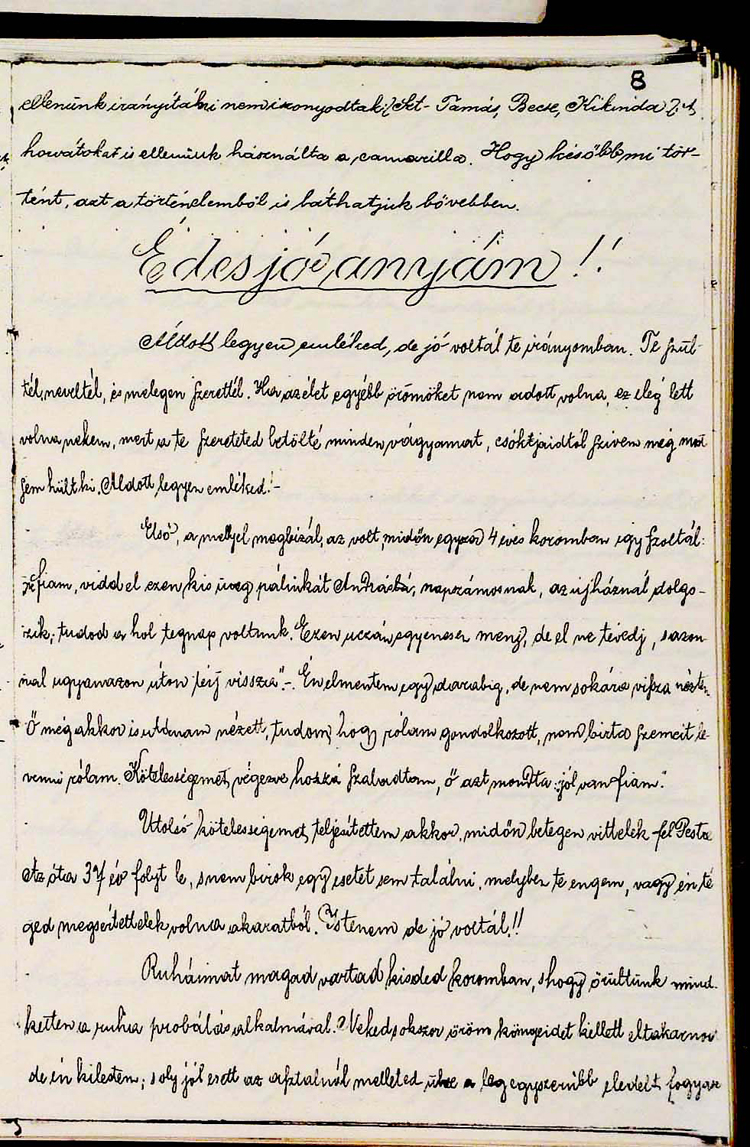 8
ellenünk irányítani nem iszonyodtak (Szt- Tamás, Becse, Kikinda) 's
horvátokat is ellenünk használta a camarilla. Hogy később mi tör-
tént, azt a történelemből is láthatjuk bővebben.
Édes jó anyám!!
Áldott legyen emléked, de jó voltál te irányomban. Te szül-
tél, neveltél, és melegen szerettél. Ha az élet egyébb örömöket nem adott volna, ez elég lett
volna nekem, mert a te szereteted betölté minden vágyamat, csókjaidtól szivem még most
sem hült ki. Áldott legyen emléked!-
Első, a mellyel megbizál, az volt, midőn egyszer 4 éves koromban így szoltál:
fiam, vidd el ezen kis üveg pálinkát Andrásnak, napszámosnak, az ujháznál dolgo-
zik; tudod a hol tegnap voltunk. Ezen uczán egyenesen menj, de el ne tévedj, s azon-
nal ugyanazon úton térj vissza".- Én elmentem egy darabig, de nem sokára vissza néztem
Ő még akkor is utánam nézett, tudom hogy rólam gondolkozott, nem birta szemeit le-
venni rólam. Kötelességemet végezve hozzá szaladtam, ő azt mondta: jól van fiam."
Utolsó kötelességemet teljesítettem akkor, midőn betegen vittelek fel Pestre
Az óta 37 év folyt le, s nem birok egy esetet sem találni, melyben te engem, vagy én té
ged megsértettelek volna akaratból. Istenem de jó voltál!!
Ruháimat magad vartad kisded koromban, s hogy örültünk mind-
ketten a ruha probálás alkalmával. Neked sokszor öröm könyeidet kellett eltakarnod
de én kilestem; s oly jól esett az asztalnál melleted ülve a legegyszerübb eledelt fogyasz